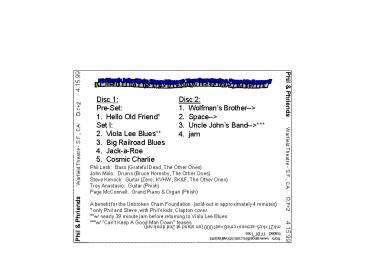 Disc 1:
Pre-Set:
1. Hello Old Friend*
Set I:
2. Viola Lee Blues**
3. Big Railroad Blues
4. Jack-a-Roe
5. Cosmic Charlie
Disc 2:
1. Wolfman's Brother-->
2. Space-->
3. Uncle John's Band-->***
4. jam
Phil Lesh: Bass (Grateful Dead, The Other Ones)
John Molo: Drums (Bruce Hornsby, The Other Ones)
Steve Kimock: Guitar (Zero, KVHW, SK&F, The Other Ones)
Trey Anastasio: Guitar (Phish)
Page McConnell: Grand Piano & Organ (Phish)
A benefit for the Unbroken Chain Foundation. (sold-out in approximately 4 minutes)
* only Phil and Steve, with Phil's kids; Clapton cover.
**w/ nearly 39 minute jam before returning to Viola Lee Blues
***w/ "Can't Keep A Good Man Down" teases.
Phil & Phriends Warfield Theatre - S.F., CA D.1+2 4.15.99
Phil & Phriends Warfield Theatre - S.F., CA D.1+2 4.15.99